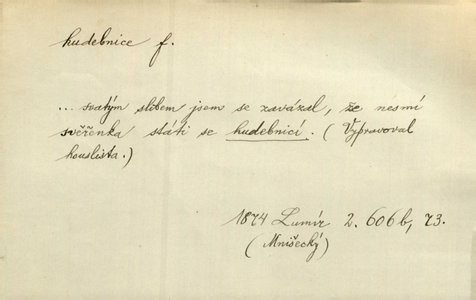 hudebnice f.
... svatým slibem jsem se zavázal, že nesmí
svěřenka státi se hudebnicí. (Vypravoval
houslista.)
1874 Lumír 2. 606b, 73.
(Mníšecký)